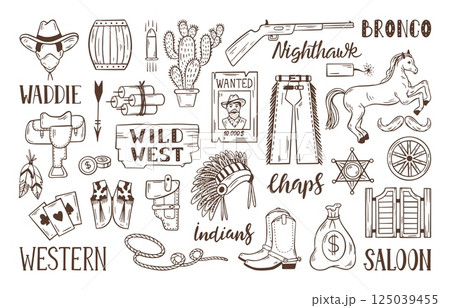 BRONCO
Nighthawk
WADDIE
WANTED
10 000 $
WILD
WEST
chaps
indians
WESTERN
$
SALOON
pixta.jp - 125039455